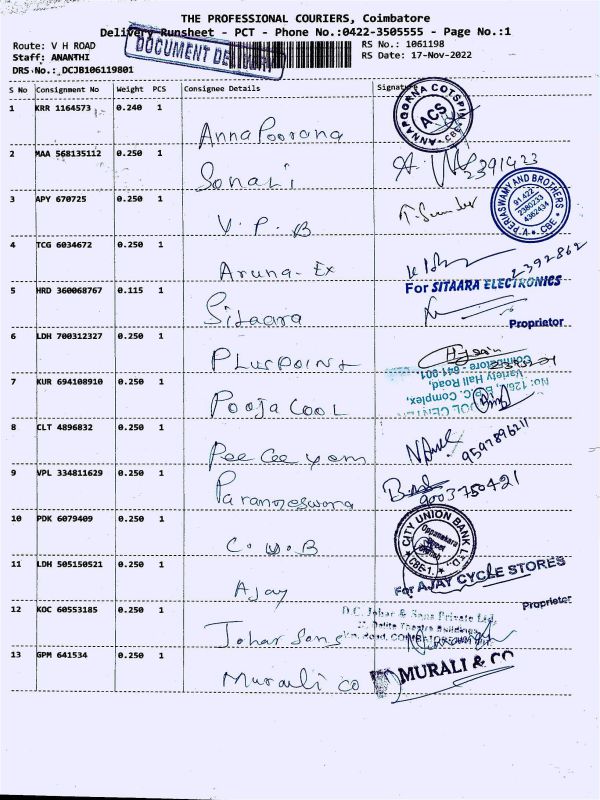 THE PROFESSIONAL COURIERS, Coimbatore
Delivery Runsheet - PCT - Phone No.:0422-3505555 - Page No.:1
DOCUMENT DELIVERY
Route: V H ROAD RS No.: 1061198
Staff: ANANTHI RS Date: 17-Nov-2022
DRS No.: DCJB106119801
S No Consignment No Weight PCS Consignee Details Signature
1 KRR 1164573 0.240 1 Annapoorana
ANNAPOORNA COTSPIN ACS CBE
2 MAA 568135112 0.250 1 Sonali 2391423
3 APY 670725 0.250 1 V. P. B
PERIASWAMY AND BROTHERS 91 422 2380233 4362434 CBE
4 TCG 6034672 0.250 1 Aruna-Ex 2392862
5 HRD 360068767 0.115 1 Sitaara
For SITAARA ELECTRONICS
Proprietor
6 LDH 700312327 0.250 1 Pluspoint
7 KUR 694108910 0.250 1 Pooja Cool
No: 126/ B.P.C. Complex,
Variety Hall Road,
Coimbatore - 641 001
8 CLT 4896832 0.250 1 Pee Cee yam 9597896211
9 VPL 334811629 0.250 1 Parameswara 9003750421
10 PDK 6079409 0.250 1 C. U. B
CITY UNION BANK LTD. Oppanakara Street Branch CBE-1.
11 LDH 505150521 0.250 1 Ajay
For AJAY CYCLE STORES
Proprietor
12 KOC 60553185 0.250 1 Johar Sons
D.C. Johar & Sons Private Ltd,
Delite Theatre Buildings
13 GPM 641534 0.250 1 Murali co
MURALI & CO